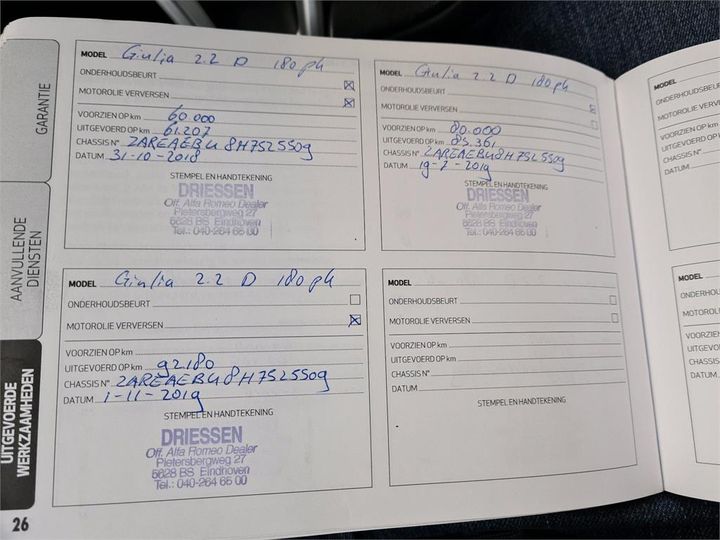 GARANTIE
AANVULLENDE
DIENSTEN
UITGEVOERDE
WERKZAAMHEDEN
26
MODEL Giulia 2.2 D 180 pk
ONDERHOUDSBEURT
MOTOROLIE VERVERSEN
VOORZIEN OP km 60.000
UITGEVOERD OP km 61.207
CHASSIS N° ZAREAEBU8H7525509
DATUM 31-10-2018
STEMPEL EN HANDTEKENING
DRIESSEN
Off. Alfa Romeo Dealer
Pietersbergweg 27
5628 BS Eindhoven
Tel.: 040-264 65 00
MODEL Giulia 2.2 D 180 pk
ONDERHOUDSBEURT
MOTOROLIE VERVERSEN
VOORZIEN OP km 80.000
UITGEVOERD OP km 85.361
CHASSIS N° ZAREAEBU8H7525509
DATUM 19-7-2019
STEMPEL EN HANDTEKENING
DRIESSEN
Off. Alfa Romeo Dealer
Pietersbergweg 27
5628 BS Eindhoven
Tel.: 040-264 65 00
MODEL Giulia 2.2 D 180 pk
ONDERHOUDSBEURT
MOTOROLIE VERVERSEN
VOORZIEN OP km
UITGEVOERD OP km 92180
CHASSIS N° ZAREAEBU8H7525509
DATUM 1-11-2019
STEMPEL EN HANDTEKENING
DRIESSEN
Off. Alfa Romeo Dealer
Pietersbergweg 27
5628 BS Eindhoven
Tel.: 040-264 65 00
MODEL
ONDERHOUDSBEURT
MOTOROLIE VERVERSEN
VOORZIEN OP km
UITGEVOERD OP km
CHASSIS N°
DATUM
STEMPEL EN HANDTEKENING
MODEL
DATUM
MODEL
CHASSIS N°
DATUM